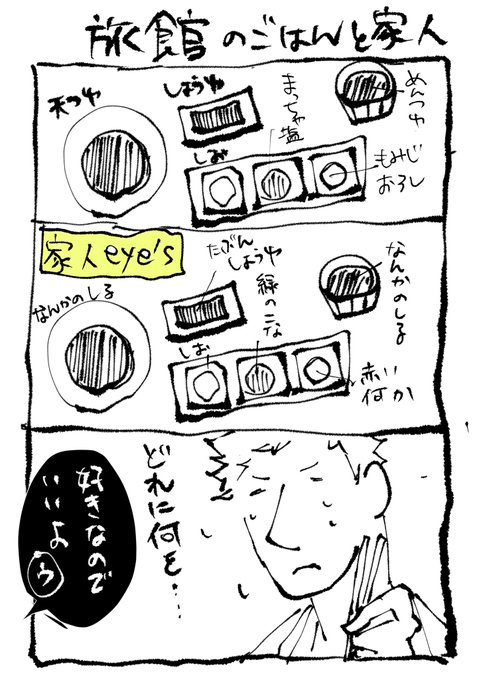 旅館のごはんと家人
天つゆ
しょうゆ
まっちゃ
塩
めんつゆ
しお
もみじ
おろし
家人eye's
なんかのしる
たぶん
しょうゆ
緑のこな
なんかのしる
しお
赤い
何か
どれに何を…
好きなので
いいよ